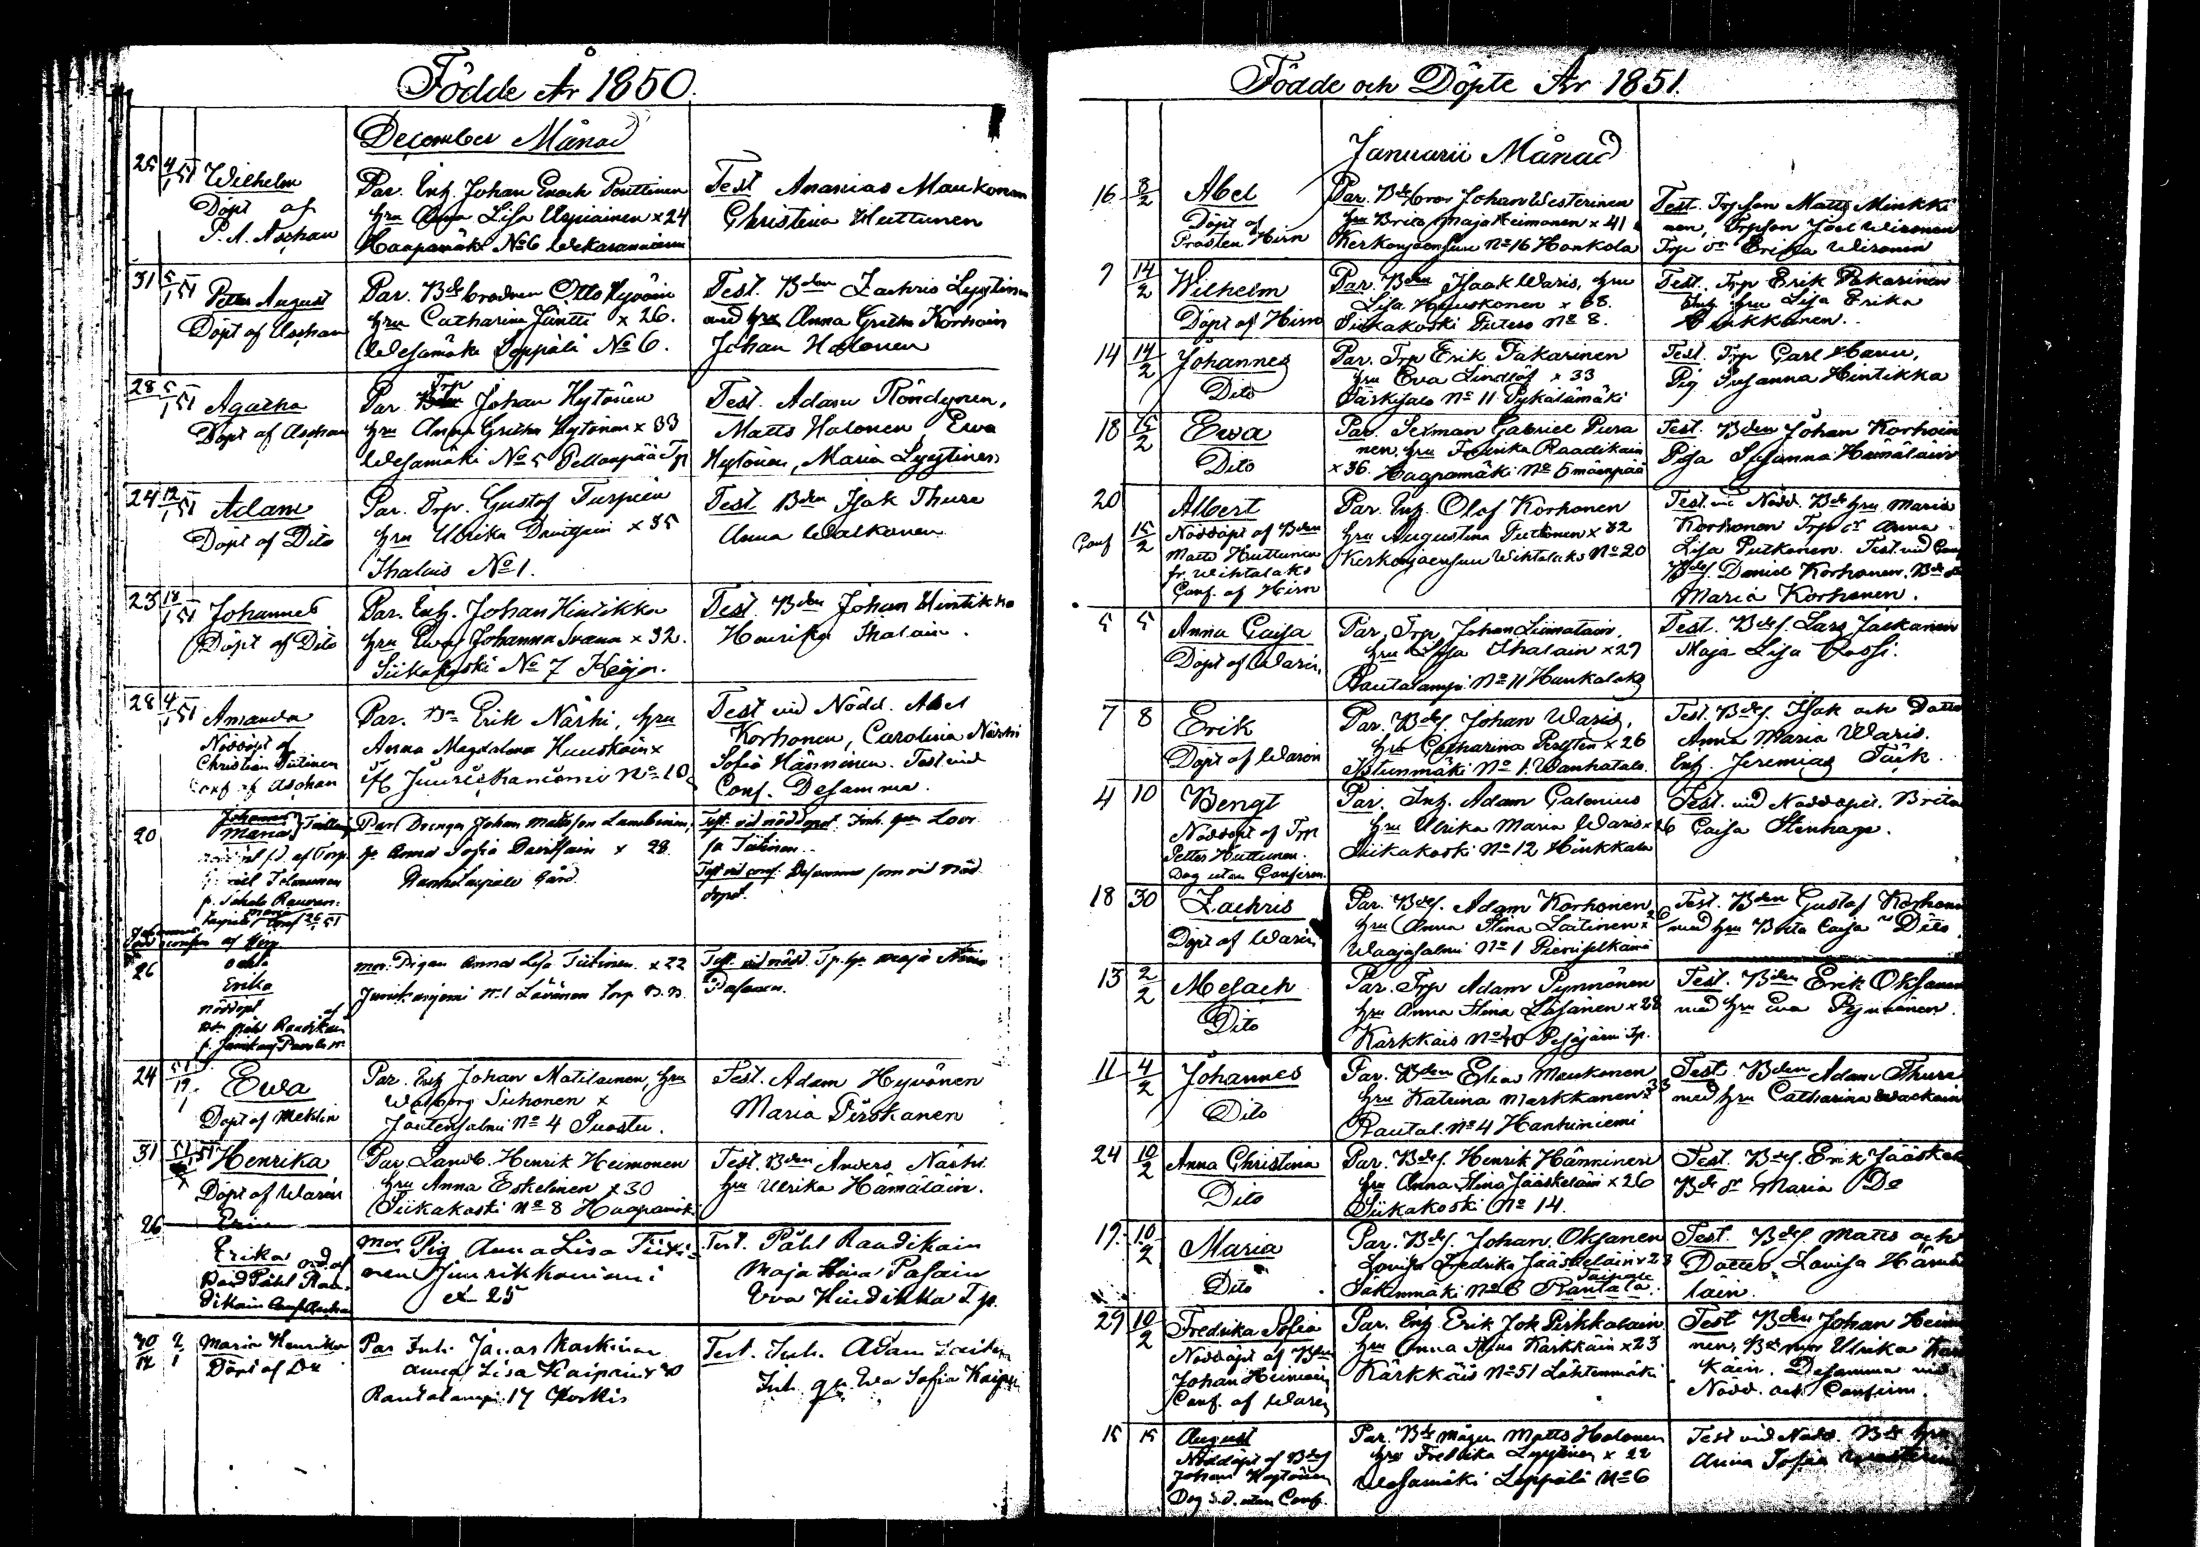 Födde År 1850.
December Månad
25 4/1 51 Wilhelm
Döpt af
P. A. Aschan
Par. Inh. Johan Enoch Penttinen
hru Anna Lisa Urpiainen x 24
Haapamäki No 6 Wekaranniemi
Test Ananias Maukonen
Christina Huttunen
31 5/1 51 Petter August
Döpt af Aschan
Par. Bde brodren Otto Hyvöin
hru Catharina Jäntti x 26.
Wesamäki Leppälä No 6.
Test. Bden Zachris Lyytinen
med hru Anna Gretha Korhoin
Johan Halonen
28 5/1 51 Agatha
Döpt af Aschan
Par. Trp Johan Hytönen
hru Anna Gretha Hytönen x 33
Wesamäki No 5 Pellonpää Trp
Test. Adam Röndynen,
Matts Halonen Ewa
Hytönen, Maria Lyytinen
24 12/1 51 Adam
Döpt af Dito
Par. Trp. Gustaf Turpein
hru Ulrika Davitsain x 35
Ihalais No 1.
Test Bden Isak Thure
Anna Walkonen
23 18/1 51 Johannes
Döpt af Dito
Par. Inh. Johan Hintikka
hru Eva Johanna Svana x 32.
Siikakoski No 7 Keijo.
Test. Bden Johan Hintikka
Henrika Ihalain.
28 4/1 51 Amanda
Nöddöpt af
Christian Tiitinen
Conf af Aschan
Par. Bn Erik Närhi, hru
Anna Magdalena Huuskoin x
Juurikkaniemi No 10
Test vid Nödd. Abel
Korhonen, Carolina Närhi
Sofia Hänninen. Test vid
Conf. Desamma.
20 Johannes
Maria Tvilling
Par Drengen Johan Mattsson Lambinen,
hr Anna Sofia Davitsain x 28
gård
Test. vid nöddopet. Inh. gen Lovi
sa Tiitinen.
Test vid conf. Desamma som vid nöd
dopet.
26 Erika
nöddöpt af
mor. Pigan Anna Lisa Tiitinen. x 22
Test. vid nödd.
24 19/1 51 Ewa
Döpt af Meklin
Par. Inh Johan Matilainen, hru
Walborg Sihonen x
Jäntensalmi No 4
Test. Adam Hyvönen
Maria Pirskanen
31 Henrika
Döpt af Waren
Par. Landb. Henrik Heimonen
hru Anna Eskelinen x 30
Siikakoski No 8 Haapamäk
Test. Bden Anders Närhi
hru Ulrika Hämäläin.
26
Erika nöd. af
Bond Påhl Raa-
dikain Conf Aschan
Mor Pig Anna Lisa Tiiti-
nen Juurikkaniemi
æt. 25
Test. Påhl Raadikain
Maja Stina Pasain
Eva Hindikka Tp.
30/12 2/1 Maria Henrika
Döpt af Do
Par Inh. Jonas Markinen
Anna Lisa Kaipain x 30
Rautalampi 17 Korkis
Test. Inh. Adam Laitin
Inh. gu. Eva Sofia Kaipai
Födde och Döpte År 1851.
Januarii Månad
16 8/2 Abel
Döpt af
Prosten Hirn
Par. Bde bror Johan Westerinen
hru Brita Maja Heimonen x 41
Kerkonjoensuu No 16 Hankola
Test. Trpson Matts Minkki
nen, Trpson Joel Wironen
Trp dr Erica Wironen
9 14/2 Wilhelm
Döpt af Hirn
Par. Bden Isaak Waris, hru
Lisa Huuskonen x 38.
Siikakoski Putero No 8.
Test. Trp Erik Pakarinen
Inh hru Lisa Erika
14 14/2 Johannes
Dito
Par. Trp Erik Pakarinen
hru Eva Lindlöf x 33
Särkisalo No 11 Pykälämäki
Test. Trp Carl Hanu,
Pig Susanna Hintikka
18 15/2 Ewa
Dito
Par. Sexman Gabriel Pura
nen, hru Fredrika Raadikain
x 36. Haapamäki No 5 mäenpää
Test. Bden Johan Korhoin
Piga Susanna Hämäläin
20
Conf 15/2
Albert
Nöddöpt af Bden
Matts Huttunen
fr. Wihtalaks
Conf. af Hirn
Par. Inh. Olof Korhonen
hru Augustina Puttonen x 32
Kerkonjoensuu Wihtalaks No 20
Test. vid Nödd. Bde hru Maria
Korhonen Trp dr Anna
Lisa Putkonen. Test. vid Conf
Bdes. Daniel Korhonen, Bde dr
Maria Korhonen.
5 5 Anna Caisa
Döpt af Warén
Par. Trp Johan Liimatain.
hru Lisa Ihalain x 29
Rautalampi No 11 Hankalaks
Test. Bdes. Lars Jäskanen
Maja Lisa Rossi.
7 8 Erik
Döpt af Warén
Par. Bdes. Johan Waris,
hru Catharina Perttin x 26
Istunmäki No 1. Wanhatalo.
Test. Bdes. Isak och Dotter
Anna Maria Waris.
Inh. Jeremias Tark.
4 10 Bengt
Nöddöpt af Trp
Petter Huttunen.
Dog utan Confirm.
Par. Inh. Adam Galenius
hru Ulrika Maria Waris x 26
Siikakoski No 12 Hinkkala
Test. vid Nöddopet. Brita
Caisa Stenhage.
18 30 Zachris
Döpt af Warén
Par. Bdes. Adam Korhonen
hru Anna Stina Laitinen x 26
Waajasalmi No 1 Pieniselkämä
Test. Bden Gustaf Korhonen
med hru Brita Caisa Dito
13 2/2 Mesach
Dito
Par. Trp Adam Pynnönen
hru Anna Stina Läsänen x 28
Kärkkäis No 40 Pesäjärvi Tp.
Test. Bden Erik Oksanen
med hru Eva Pynnönen.
11 4/2 Johannes
Dito
Par. Bden Elias Maukonen
hru Katrina Markkanen x 33
Rautal. No 4 Hanhiniemi
Test. Bden Adam Thure
med hru Catharina Wackain
24 10/2 Anna Christina
Dito
Par. Bdes. Henrik Hänninen
hru Anna Stina Jääskeläin x 26
Siikakoski No 14.
Test. Bdes. Erik Jääskel
Bde dr Maria Do
19. 10/2 Maria
Dito
Par. Bdes. Johan Oksanen
Lovisa Fredrika Jääskeläin x 23
Säkinmäki No 6 Rantala.
Test. Bdes Matts och
Dotter Lovisa Hämä
läin.
29 10/2 Fredrika Sofia
Nöddöpt af Bden
Johan Heimoin
Conf. af Warén
Par. Inh Erik Joh Pirkkalain
hru Anna Stina Kärkkäin x 23
Kärkkäis No 51 Lähtenmäki
Test Bden Johan Heimo
nen, Bde mor Ulrika Kär
käin. Desamma vid
Nödd. och Confirm.
15 15 August
Nöddöpt af Bdes
Johan Hytönen
Dog s.d. utan Conf.
Par. Bde mågen Matts Halonen
hru Fredrika Lyytinen x 22
Wesamäki Leppälä No 6
Test vid Nödd. Bde hru
Anna Sofia Westerinen